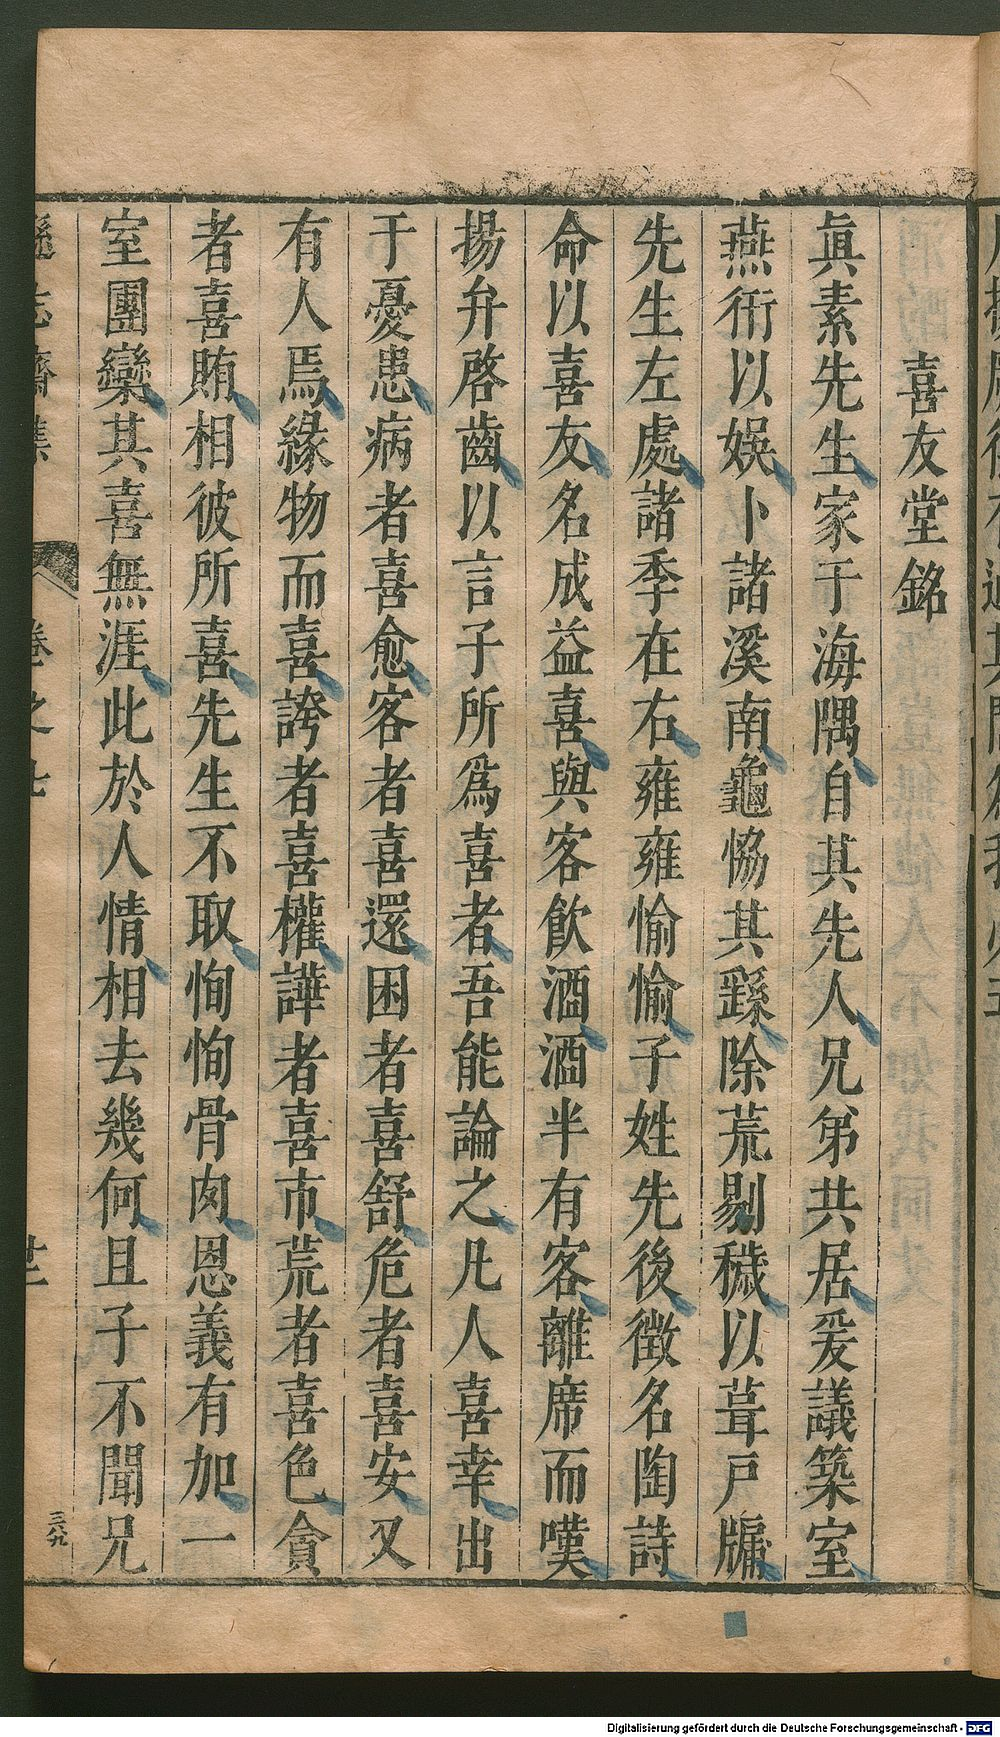 喜友堂銘
眞素先生家于海隅自其先人兄弟共居爰議築室
燕衎以娛卜諸溪南龜恊其繇除荒剔穢以葺戶牖
先生左處諸季在右雍雍愉愉子姓先後徵名陶詩
命以喜友名成益喜與客飲酒酒半有客離席而嘆
揚弁啓齒以言子所爲喜者吾能論之凡人喜幸出
于憂患病者喜愈客者喜還困者喜舒危者喜安又
有人焉緣物而喜誇者喜權譁者喜市荒者喜色貪
者喜賄相彼所喜先生不取恂恂骨肉恩義有加一
室團欒其喜無涯此於人情相去幾何且子不聞兄
遜志齋集
卷之七
廿
三八九
Digitalisierung gefördert durch die Deutsche Forschungsgemeinschaft - DFG